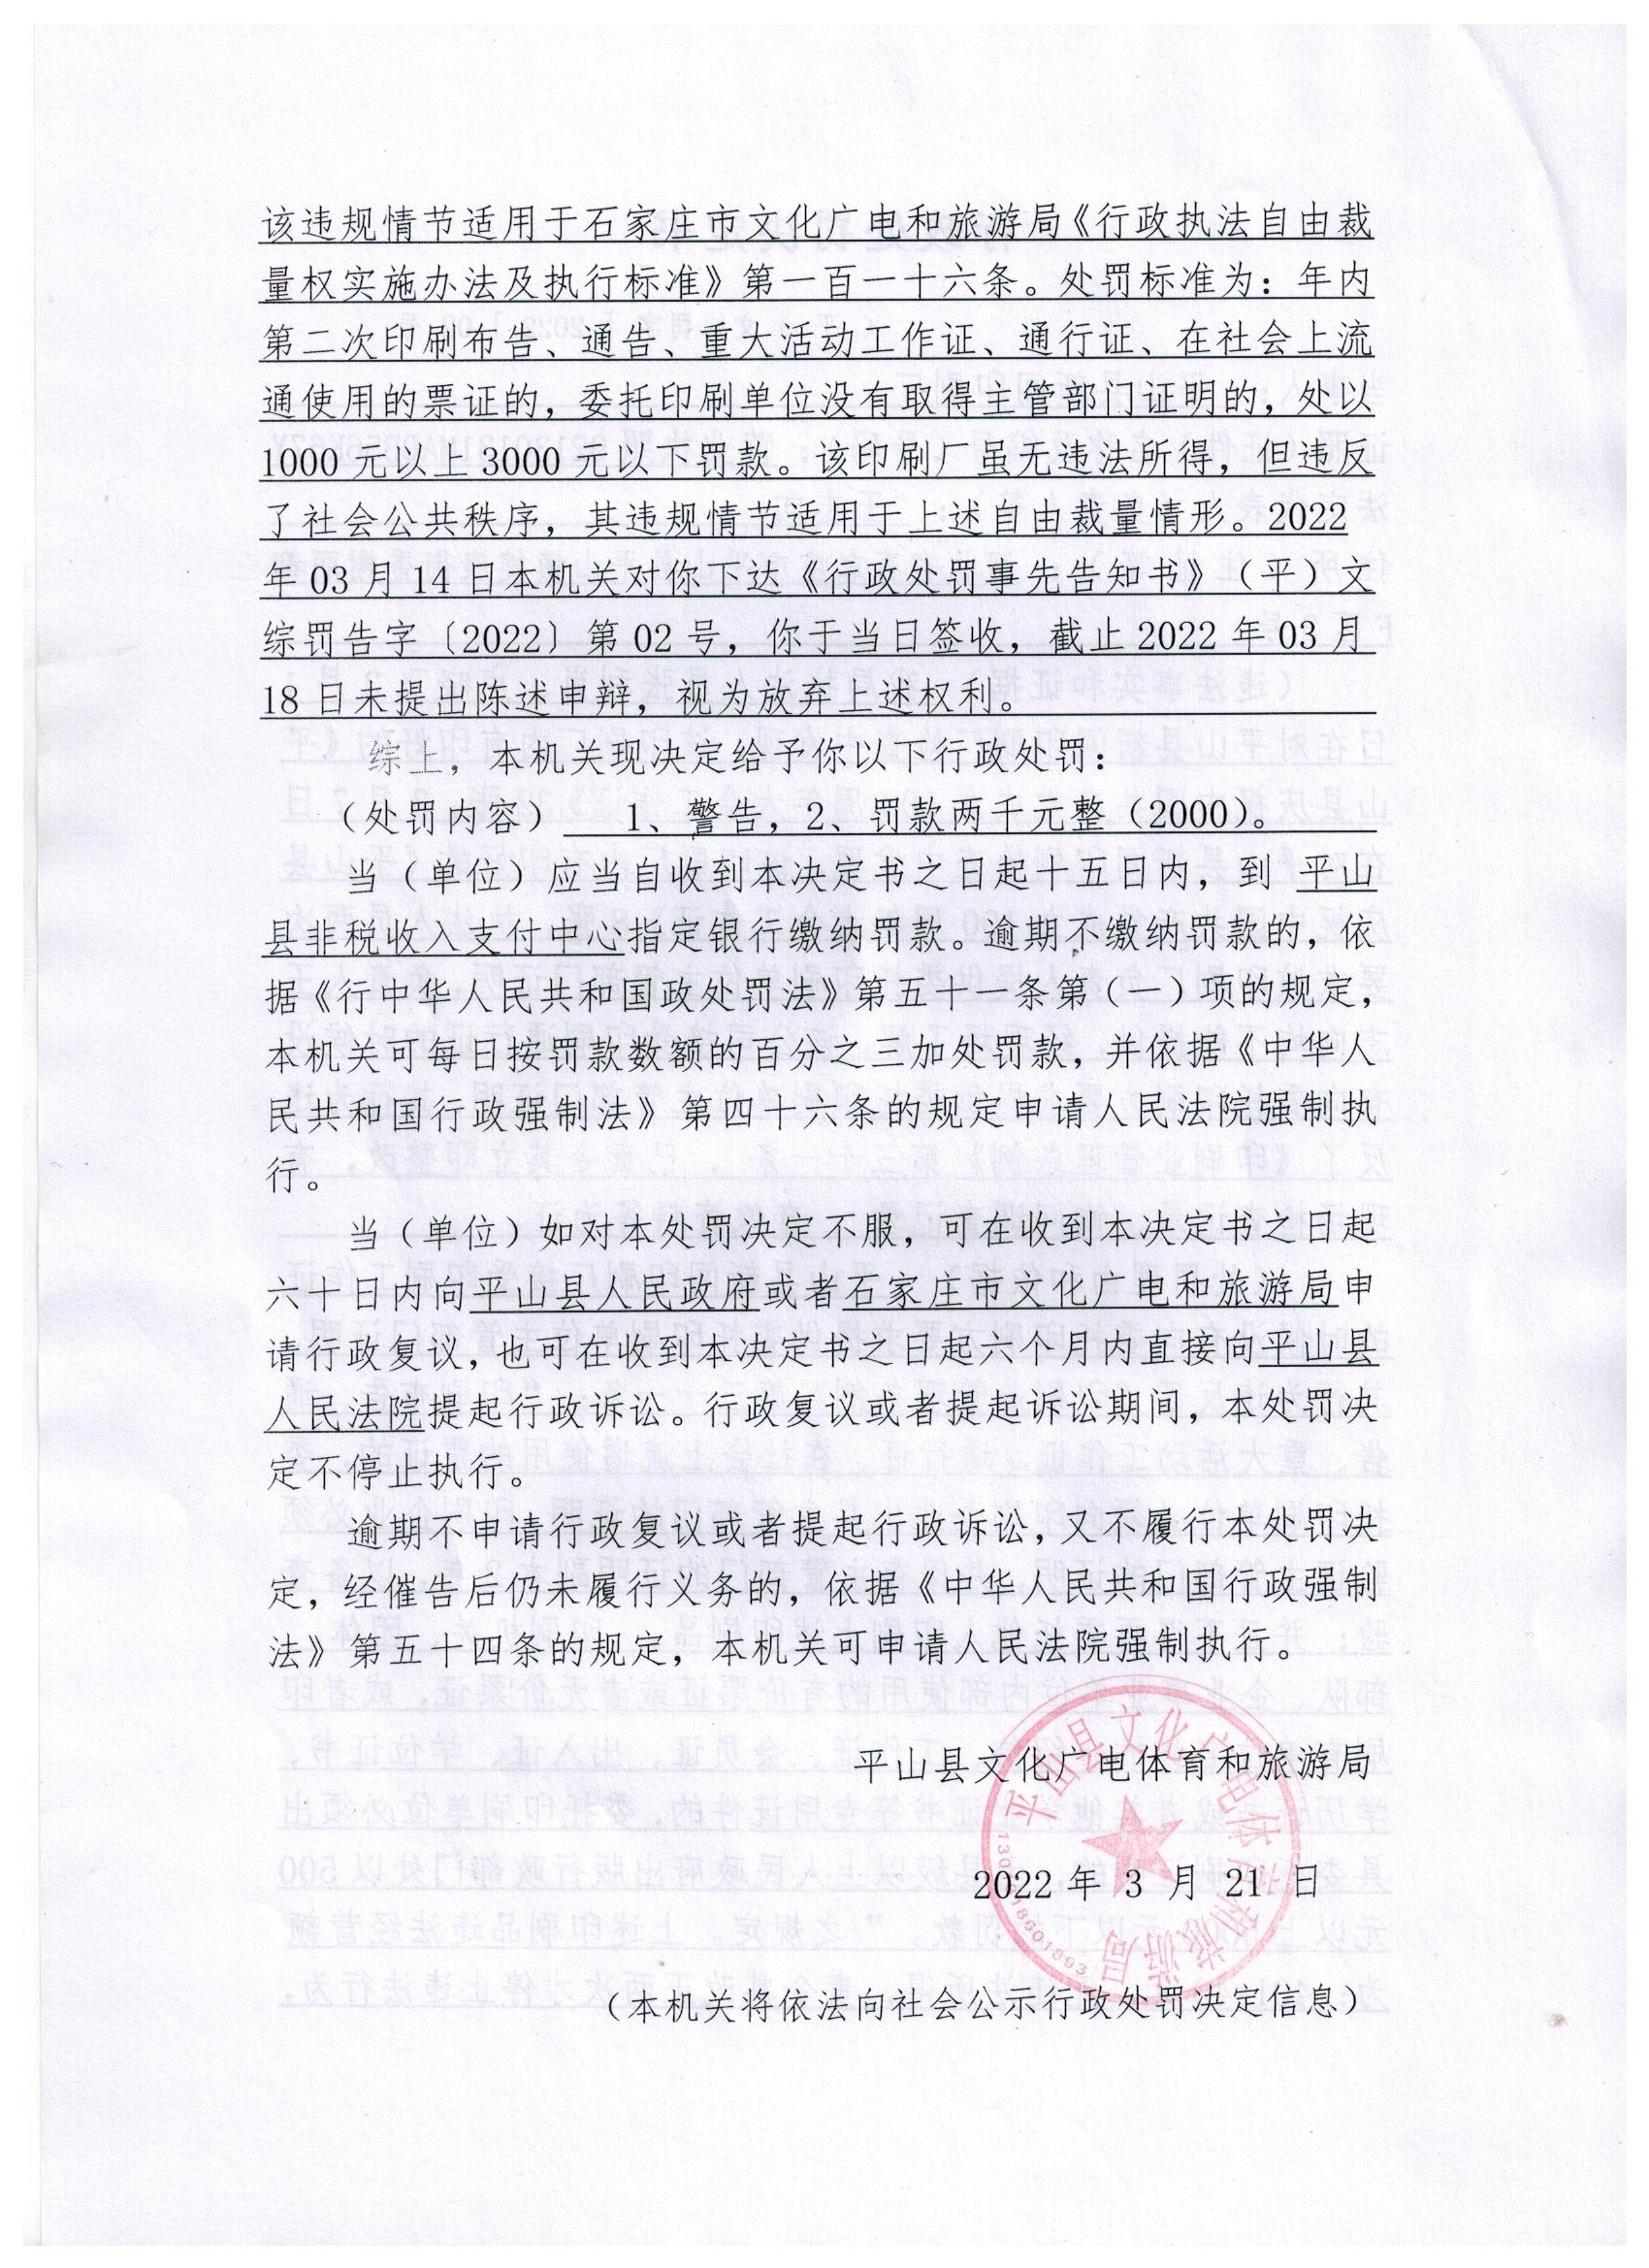 该违规情节适用于石家庄市文化广电和旅游局《行政执法自由裁
量权实施办法及执行标准》第一百一十六条。处罚标准为：年内
第二次印刷布告、通告、重大活动工作证、通行证、在社会上流
通使用的票证的，委托印刷单位没有取得主管部门证明的，处以
1000 元以上 3000 元以下罚款。该印刷厂虽无违法所得，但违反
了社会公共秩序，其违规情节适用于上述自由裁量情形。2022
年 03 月 14 日本机关对你下达《行政处罚事先告知书》（平）文
综罚告字〔2022〕第 02 号，你于当日签收，截止 2022 年 03 月
18 日未提出陈述申辩，视为放弃上述权利。
综上，本机关现决定给予你以下行政处罚：
（处罚内容） 1、警告，2、罚款两千元整（2000）。
当（单位）应当自收到本决定书之日起十五日内，到 平山
县非税收入支付中心指定银行缴纳罚款。逾期不缴纳罚款的，依
据《行中华人民共和国政处罚法》第五十一条第（一）项的规定，
本机关可每日按罚款数额的百分之三加处罚款，并依据《中华人
民共和国行政强制法》第四十六条的规定申请人民法院强制执
行。
当（单位）如对本处罚决定不服，可在收到本决定书之日起
六十日内向平山县人民政府或者石家庄市文化广电和旅游局申
请行政复议，也可在收到本决定书之日起六个月内直接向平山县
人民法院提起行政诉讼。行政复议或者提起诉讼期间，本处罚决
定不停止执行。
逾期不申请行政复议或者提起行政诉讼，又不履行本处罚决
定，经催告后仍未履行义务的，依据《中华人民共和国行政强制
法》第五十四条的规定，本机关可申请人民法院强制执行。
平山县文化广电体育和旅游局
2022 年 3 月 21 日
（本机关将依法向社会公示行政处罚决定信息）
平山县文化广电体育和旅游局